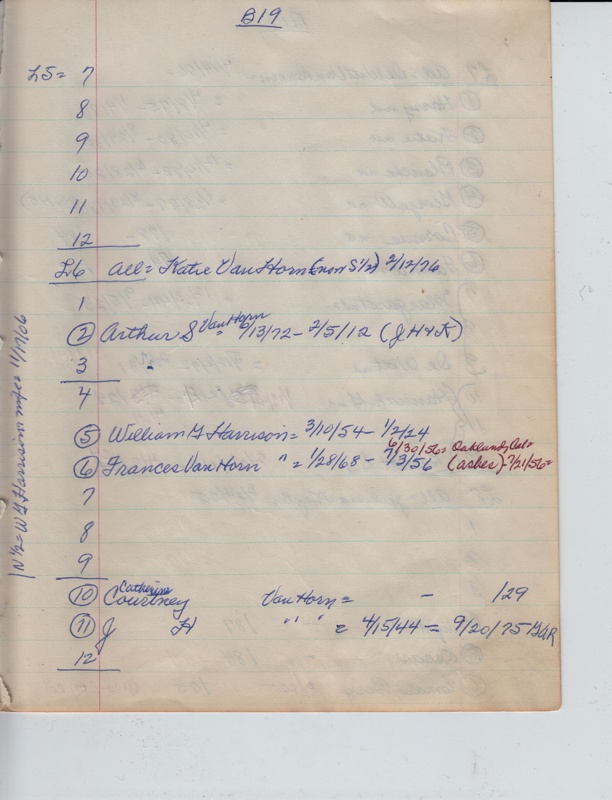 B19
L5 = 7
8
9
10
11
12
L6 All = Katie Van Horn (now S 1/2) 2/12/76
1
Van Horn
② Arthur S " 6/13/72 - 2/5/12 (J H & K)
3
4
⑤ William G Harrison = 3/10/54 - 1/2/24
6/30/56 = Oakland, Cal =
⑥ Frances Van Horn " = 1/28/68 - 7/3/56 (ashes) - 7/21/56 =
7
8
9
Catherine
⑩ Courtney Van Horn = - 129
⑪ J H " " = 4/15/44 = 9/20/75 GAR
12
N 1/2 = W G Harrison 11/17/06